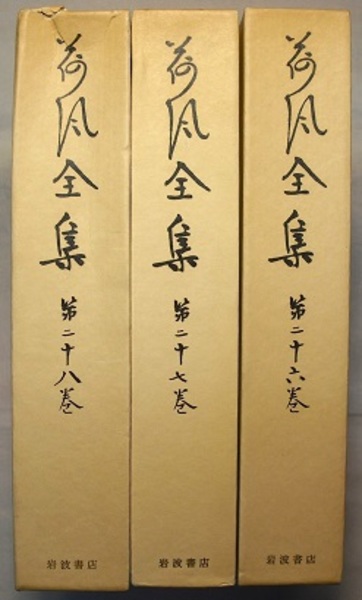 荷風全集
第二十八巻
岩波書店
荷風全集
第二十七巻
岩波書店
荷風全集
第二十六巻
岩波書店